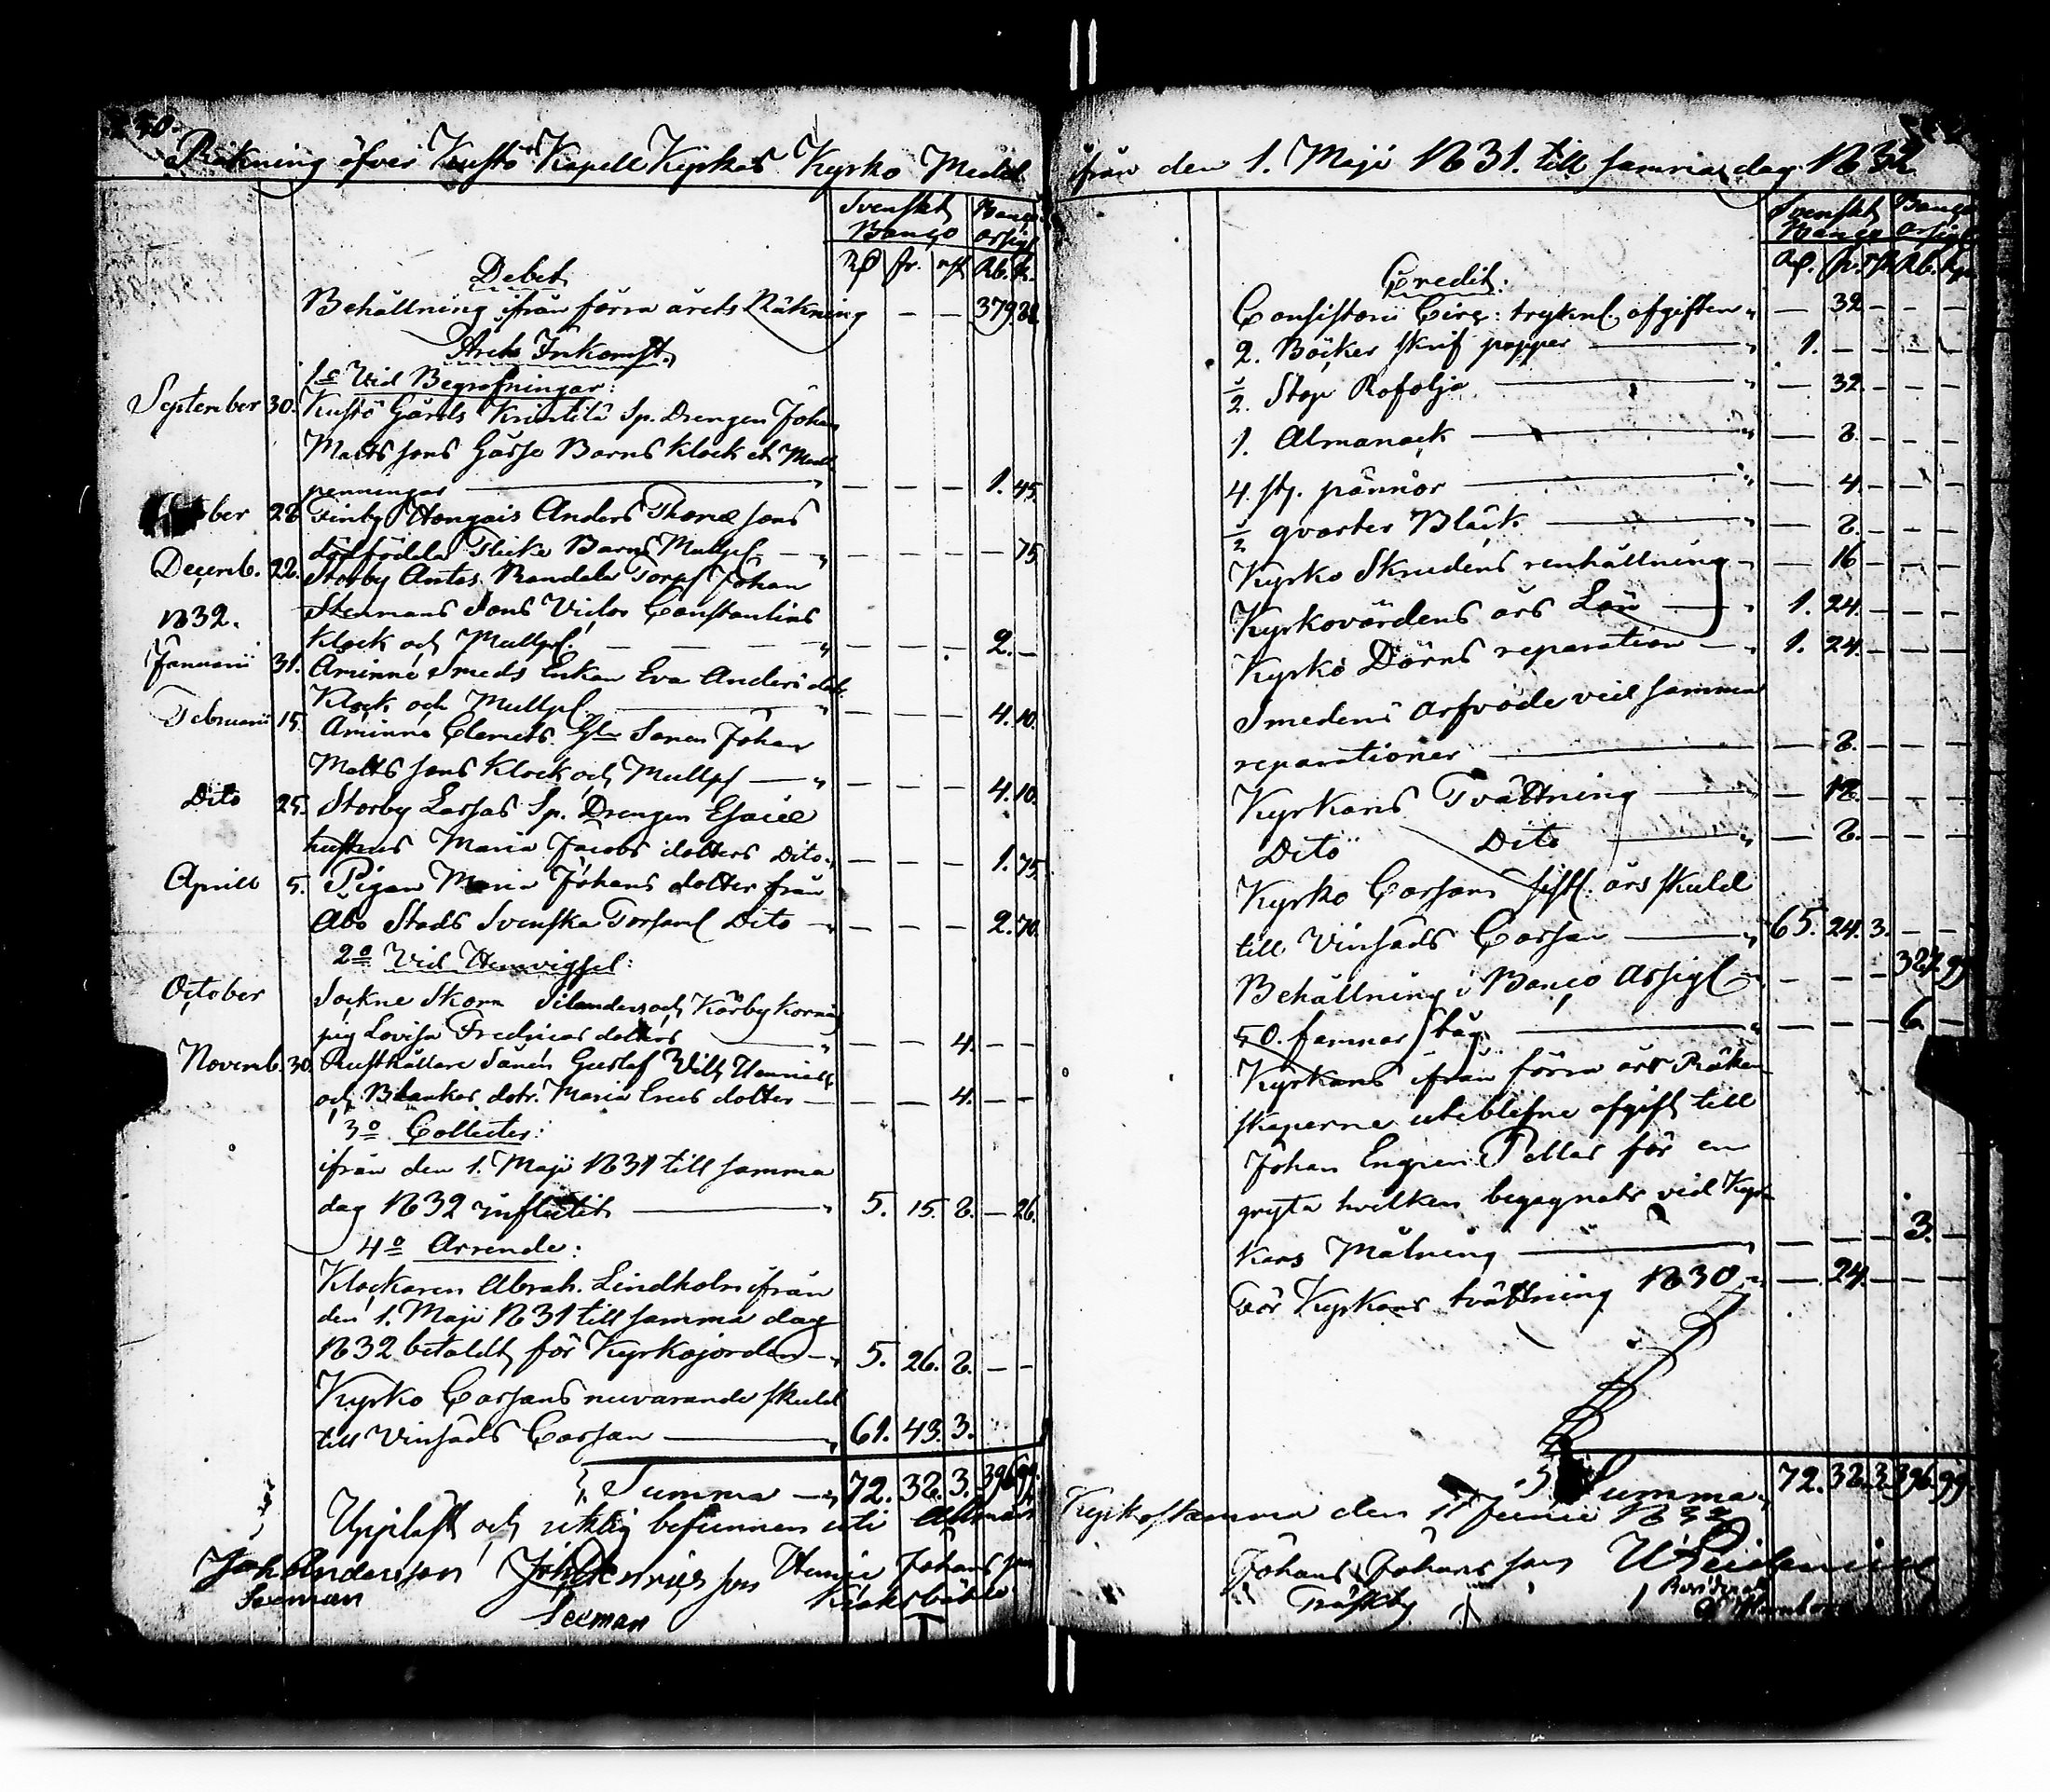 Räkning öfver Kustö Kapell Kyrkas Kyrko Medel
Svenskt Banco
Banco Assigt
Rd sk. rst Rb. K.
Debet
Behållning ifrån förra årets Räkning — — 379.
Årets Inkomst.
1o Vid Begrafningar:
September 30. Kustö Gårds Sp. Drengen Johan
Matts sons Gosse Barns Klock et Mull
penningar — — — — 1. 45.
ber 28. Finby Anders sons
dödfödda Flicke Barns Mullp — — — — — 75.
Decemb. 22. Storby Antas Randala Torp Johan
1832. Stenmans Sons Victor Constantins
Klock och Mullp. — — — — 2. —
Januarii 31. Åminne Smeds Enkan Eva Anders dot.
Klock och Mullp — — — — 4. 10.
Februarii 15. Åminne Clemets Sonen Johan
Matts sons Klock och Mullp — — — — 4. 10.
Dito 25. Storby Lassas Sp. Drengen Esaie
hustrus Maria Jacobs dotters Dito — — — 1. 75.
Aprill 5. Pigan Maria Johans dotter från
Åbo Stads Svenska Dito — — — — 2. 70.
2o Vid Henvigsel:
October Sockne Skom. Silander och Kärby
pig Lovisa Fredrics dotters — — — 4. — —
Novemb. 30. Rusthållare Sånen Gustaf Henrics
och Blankas dotr. Maria Erics dotter — — — 4. — —
3o Collecter:
ifrån den 1. Maji 1831 till samma
dag 1832 influtit — 5. 15. 8. — 26.
4o Arrende:
Klockaren Abrah. Lindholm ifrån
den 1. Maji 1831 till samma dag
1832 betaldt för Kyrkojorden — 5. 26. 8. — —
Kyrko Cassans nuvarande skuld
till Vinsåds Cassan — 61. 43. 3.
Summa — 72. 38. 3. 396. 99.
Uppläst och riktig befunnen uti Allmän
Joh Anderson
Seeman
Joh Henrics son
Seeman
Henric Johans son
ifrån den 1. Maji 1831. till samma dag 1832
Svenskt Banco
Banco Assigt
Credit:
Consistorii Circ: tryknl. afgiften — 32 — — —
2. Böcker skrif papper — 1. — — — —
½ Stop Rofolja — — 32 — — —
1. Almanack — — 8. — — —
4. st. pännor — — 4. — — —
½ qvarter Bläck — — 8. — — —
Kyrko Skrudens renhållning — — 16 — — —
Kyrkovärdens års Lön — 1. 24. — — —
Kyrko Dörns reparation — 1. 24. — — —
Smedens arfvode vid samma
reparationer — — 8. — — —
Kyrkans Tvättning — — — — —
Dito Dito — — 8. — — —
Kyrko Cassans sistl. års skuld
till Vinsåds Cassan — 65. 24. 3. — —
Behållning i Banco Assigt — — — 387. 99
50. famnar Tåg — — — — 6. —
Kyrkans ifrån förra års Räken
skaperne utiblefne afgift till
Johan Engren Pellas för en
gryta hvilken begagnats vid Kyr
kans Målning — — — — 3. —
För Kyrkans tvättning 1830 — — 24. — — —
Summa 72. 38. 3. 396. 99.
Kyrkostämma den 11 Junii 1832
Johans Johans son
Träskby